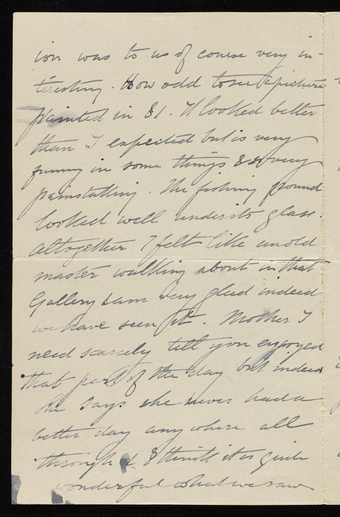 ion was to us of course very in-
teresting. How odd to see a picture
painted in 81. It looked better
than I expected but is very
funny in some things & so very
painstaking. The fishing pound
looked well under its glass.
Altogether I felt like an old
master walking about in that
Gallery & am very glad indeed
we have seen it. Mother I
need scarcely tell you enjoyed
that part of the day but indeed
she says she never had a
better day anywhere all
through & I think it is quite
wonderful what we saw